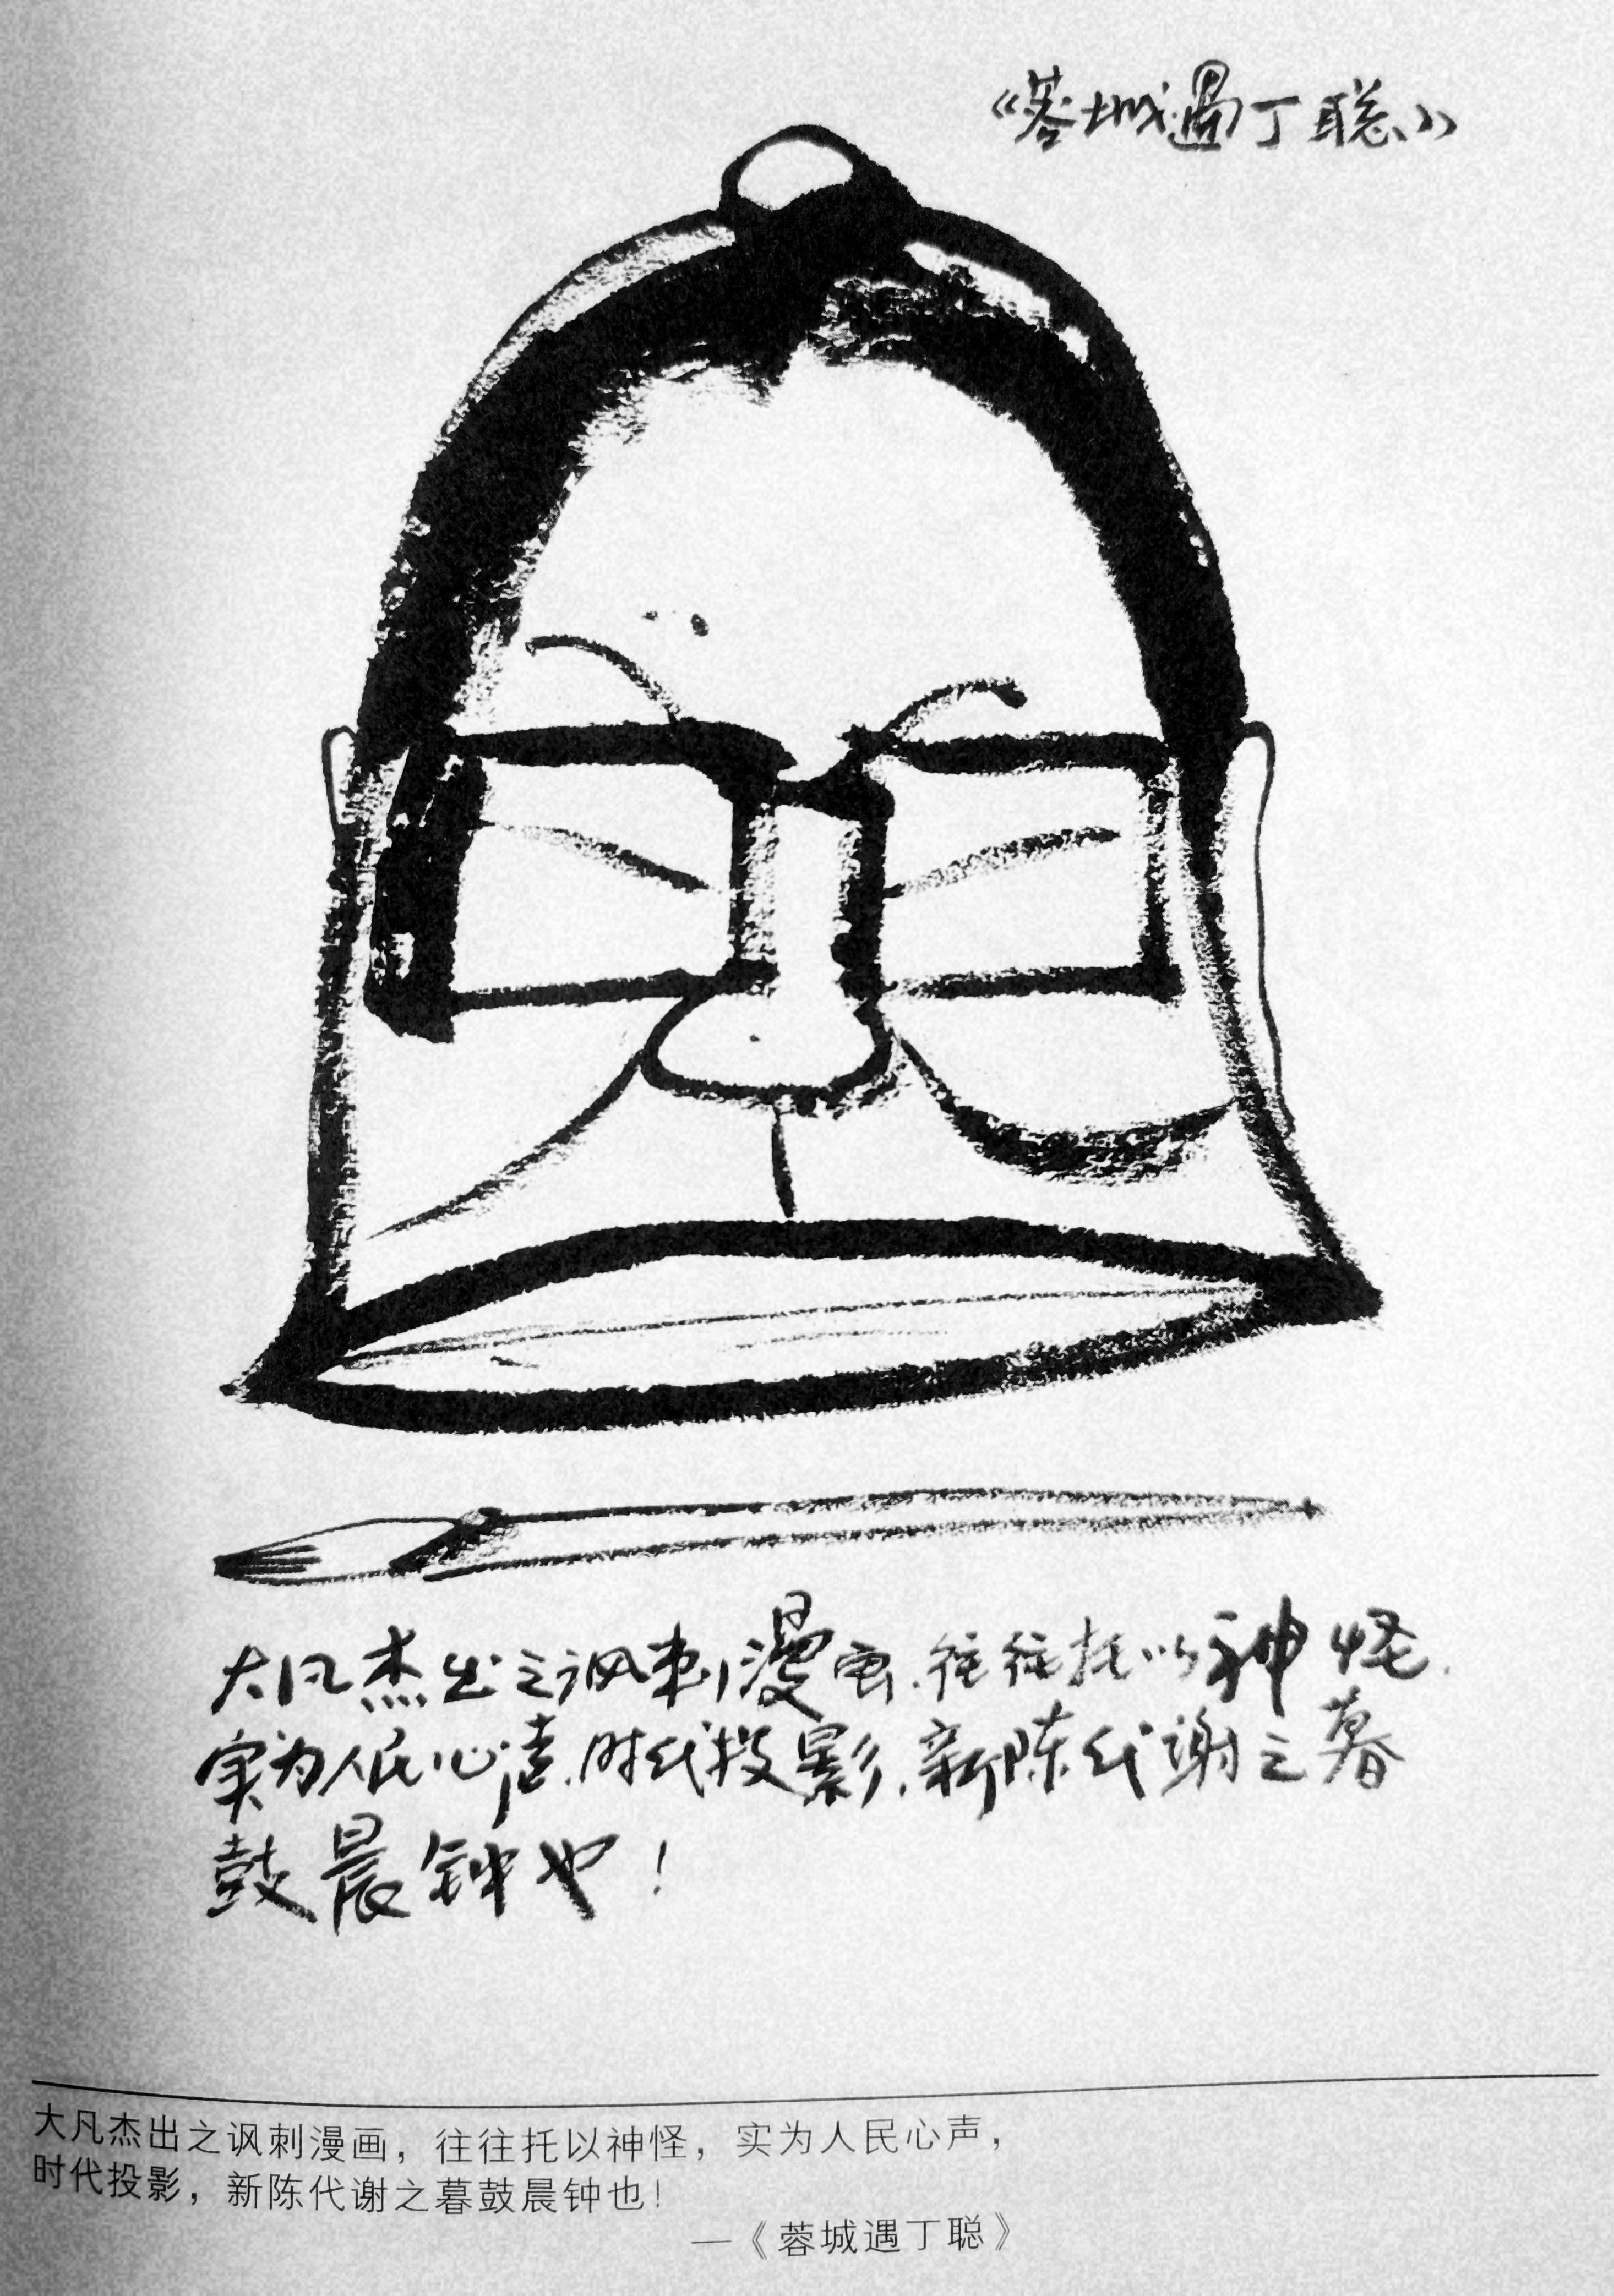 《蓉城遇丁聪》
大凡杰出之讽刺漫画，往往托以神怪，
实为人民心声，时代投影，新陈代谢之暮
鼓晨钟也！
大凡杰出之讽刺漫画，往往托以神怪，实为人民心声，
时代投影，新陈代谢之暮鼓晨钟也！
—《蓉城遇丁聪》